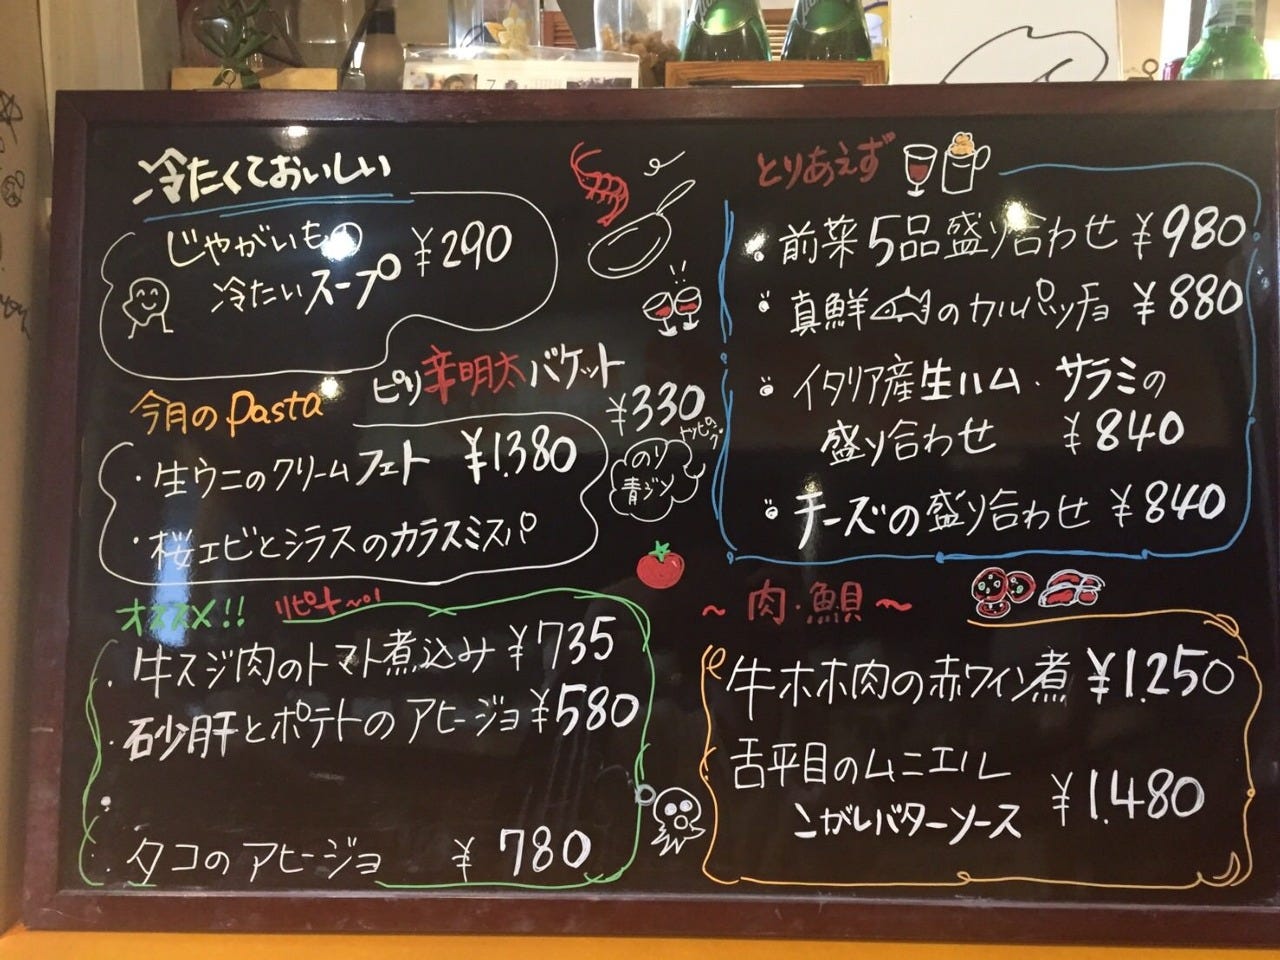 冷たくておいしい
じゃがいもの
冷たいスープ ¥290
ピリ辛明太バケット
¥330
トッピング
のり
青ジソ
今月のPasta
・生ウニのクリームフェト ¥1.380
・桜エビとシラスのカラスミスパ
オススメ!! リピートNo1
・牛スジ肉のトマト煮込み ¥735
・砂肝とポテトのアヒージョ ¥580
・タコのアヒージョ ¥780
とりあえず
・前菜5品盛り合わせ ¥980
・真鮮のカルパッチョ ¥880
・イタリア産生ハム・サラミの
盛り合わせ ¥840
・チーズの盛り合わせ ¥840
～肉・魚～
牛ホホ肉の赤ワイン煮 ¥1.250
舌平目のムニエル
こがしバターソース ¥1.480